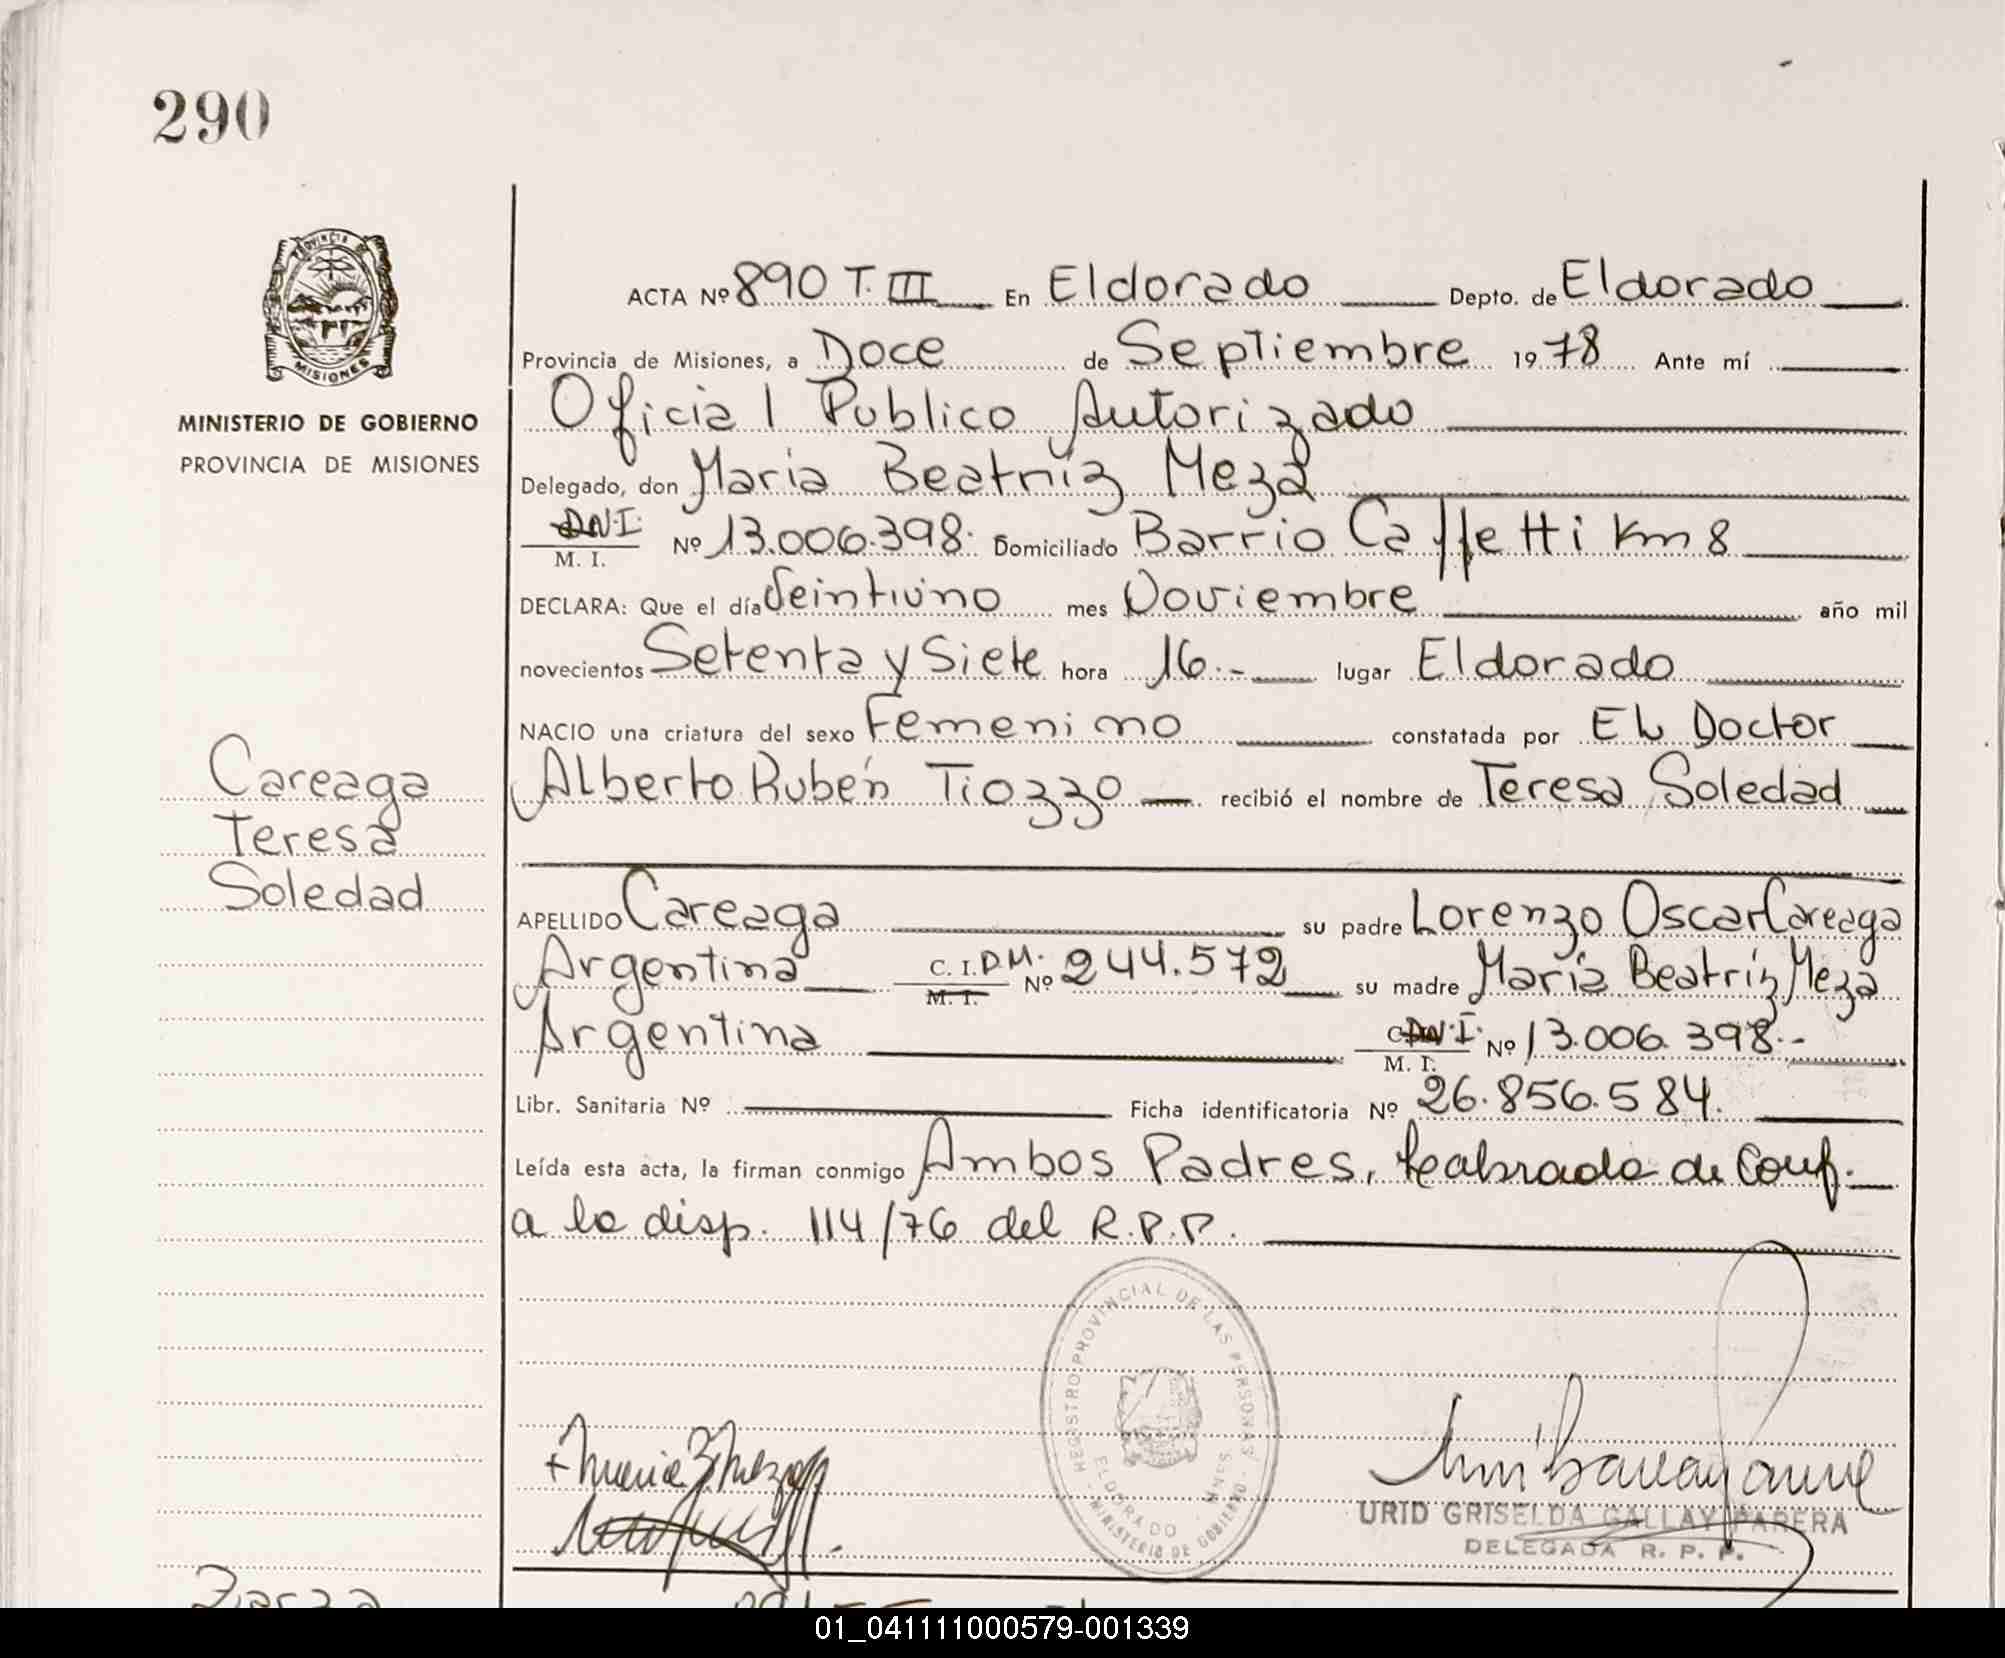 290
PROVINCIA DE
MISIONES
MINISTERIO DE GOBIERNO
PROVINCIA DE MISIONES
ACTA Nº 890 T. III En Eldorado Depto. de Eldorado
Provincia de Misiones, a Doce de Septiembre 1978 Ante mí
Oficial Publico Autorizado
Delegado, don Maria Beatriz Meza
DNI.
M. I. Nº 13.006.398. Domiciliado Barrio Caffetti Km 8
DECLARA: Que el día Veintiuno mes Noviembre año mil
novecientos Setenta y Siete hora 16.- lugar Eldorado
NACIO una criatura del sexo Femenino constatada por EL Doctor
Alberto Rubén Tiozzo recibió el nombre de Teresa Soledad
Careaga
Teresa
Soledad
APELLIDO Careaga su padre Lorenzo Oscar Careaga
Argentina C. I. P.M. M. I. Nº 244.572 su madre María Beatríz Meza
Argentina DNI. M. I. Nº 13.006.398.-
Libr. Sanitaria Nº Ficha identificatoria Nº 26.856.584.
Leída esta acta, la firman conmigo Ambos Padres, Leabrada de Conf.
a la disp. 114/76 del R.P.P.
REGISTRO PROVINCIAL DE LAS PERSONAS
ELDORADO - MNES.
MINISTERIO DE GOBIERNO
URID GRISELDA GALLAY PARERA
DELEGADA R. P. P.
Zarza
01_041111000579-001339